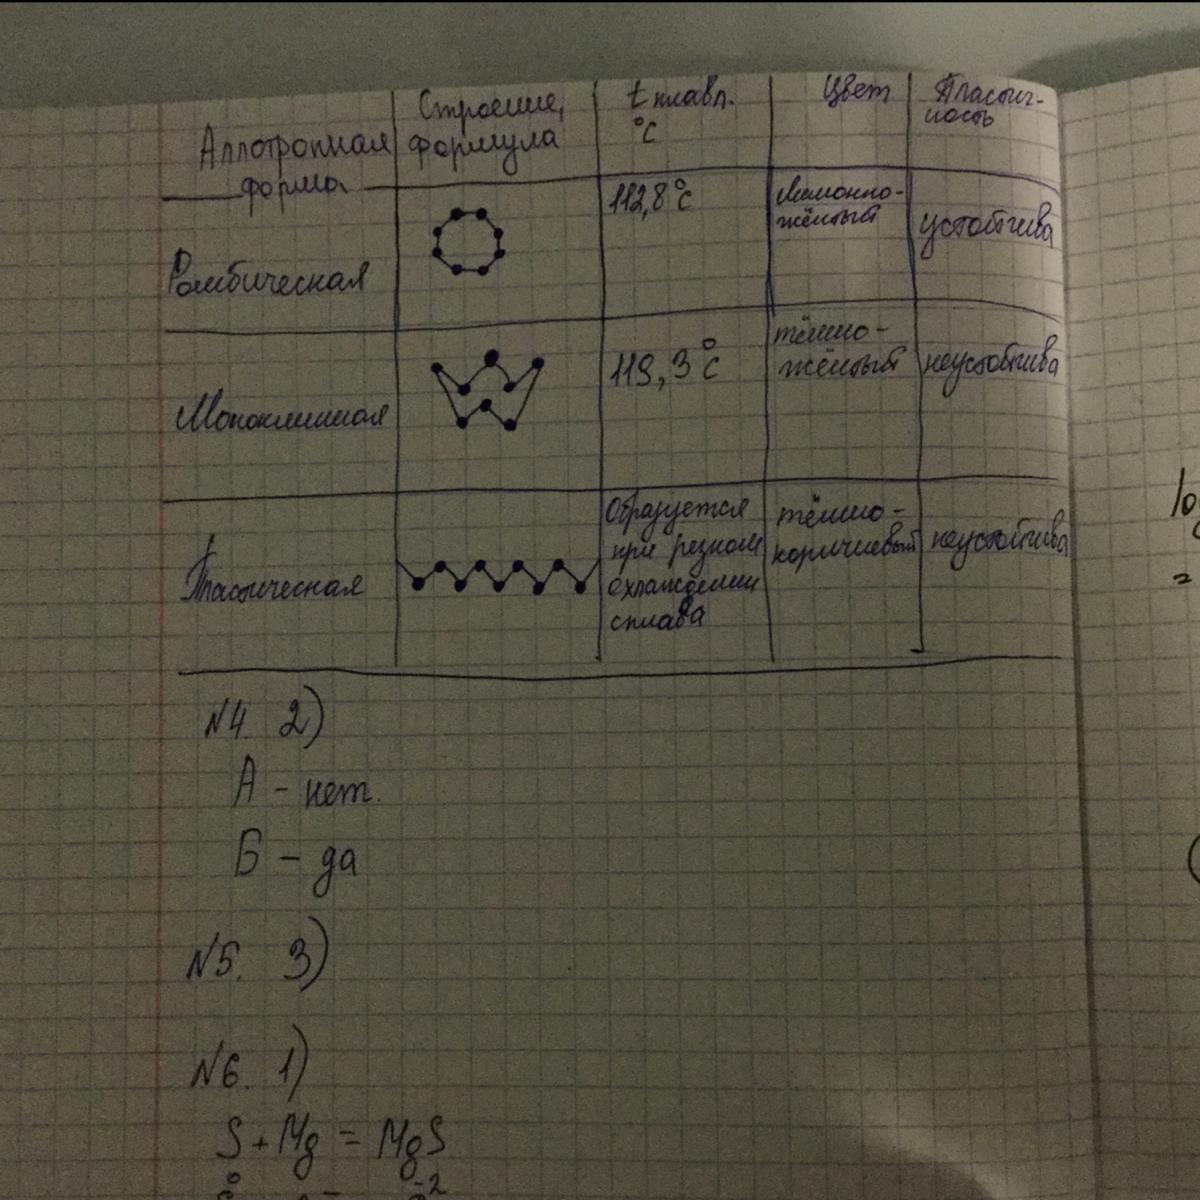 Аллотропная форма
Строение, формула
t плавл. °C
Цвет
Пластич-
ность
Ромбическая
112,8°C
Лимонно-
жёлтый
устойчива
Моноклинная
119,3°C
тёмно-
жёлтый
неустойчива
Пластическая
Образуется
при резком
охлаждении
сплава
тёмно-
коричневый
неустойчива
№4. 2)
А - нет.
Б - да
№5. 3)
№6. 1)
S + Mg = MgS